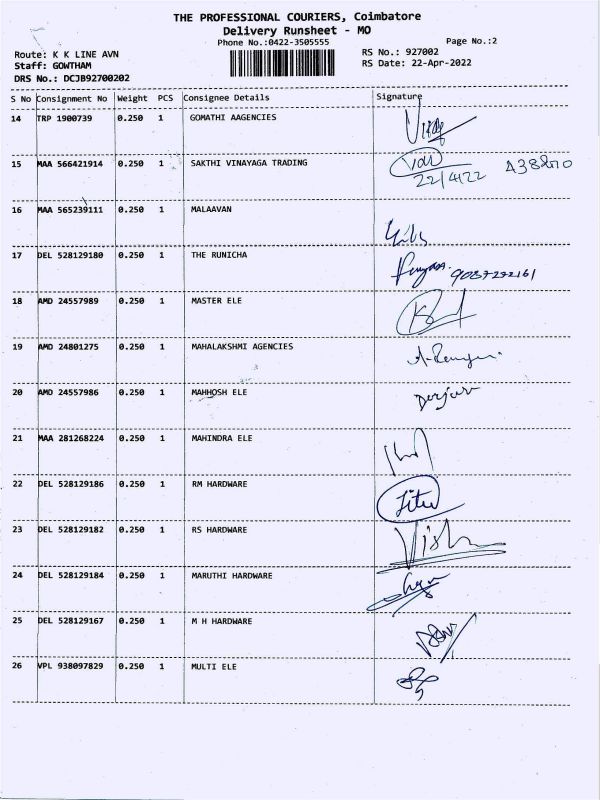 THE PROFESSIONAL COURIERS, Coimbatore
Delivery Runsheet - MO
Phone No.:0422-3505555
Page No.:2
Route: K K LINE AVN
RS No.: 927002
Staff: GOWTHAM
RS Date: 22-Apr-2022
DRS No.: DCJB92700202
S No Consignment No Weight PCS Consignee Details Signature
14 TRP 1900739 0.250 1 GOMATHI AAGENCIES
15 MAA 566421914 0.250 1 SAKTHI VINAYAGA TRADING
22/4/22
16 MAA 565239111 0.250 1 MALAAVAN
17 DEL 528129180 0.250 1 THE RUNICHA
18 AMD 24557989 0.250 1 MASTER ELE
19 AMD 24801275 0.250 1 MAHALAKSHMI AGENCIES
20 AMD 24557986 0.250 1 MAHHOSH ELE
21 MAA 281268224 0.250 1 MAHINDRA ELE
22 DEL 528129186 0.250 1 RM HARDWARE Jitu
23 DEL 528129182 0.250 1 RS HARDWARE
24 DEL 528129184 0.250 1 MARUTHI HARDWARE
25 DEL 528129167 0.250 1 M H HARDWARE
26 VPL 938097829 0.250 1 MULTI ELE